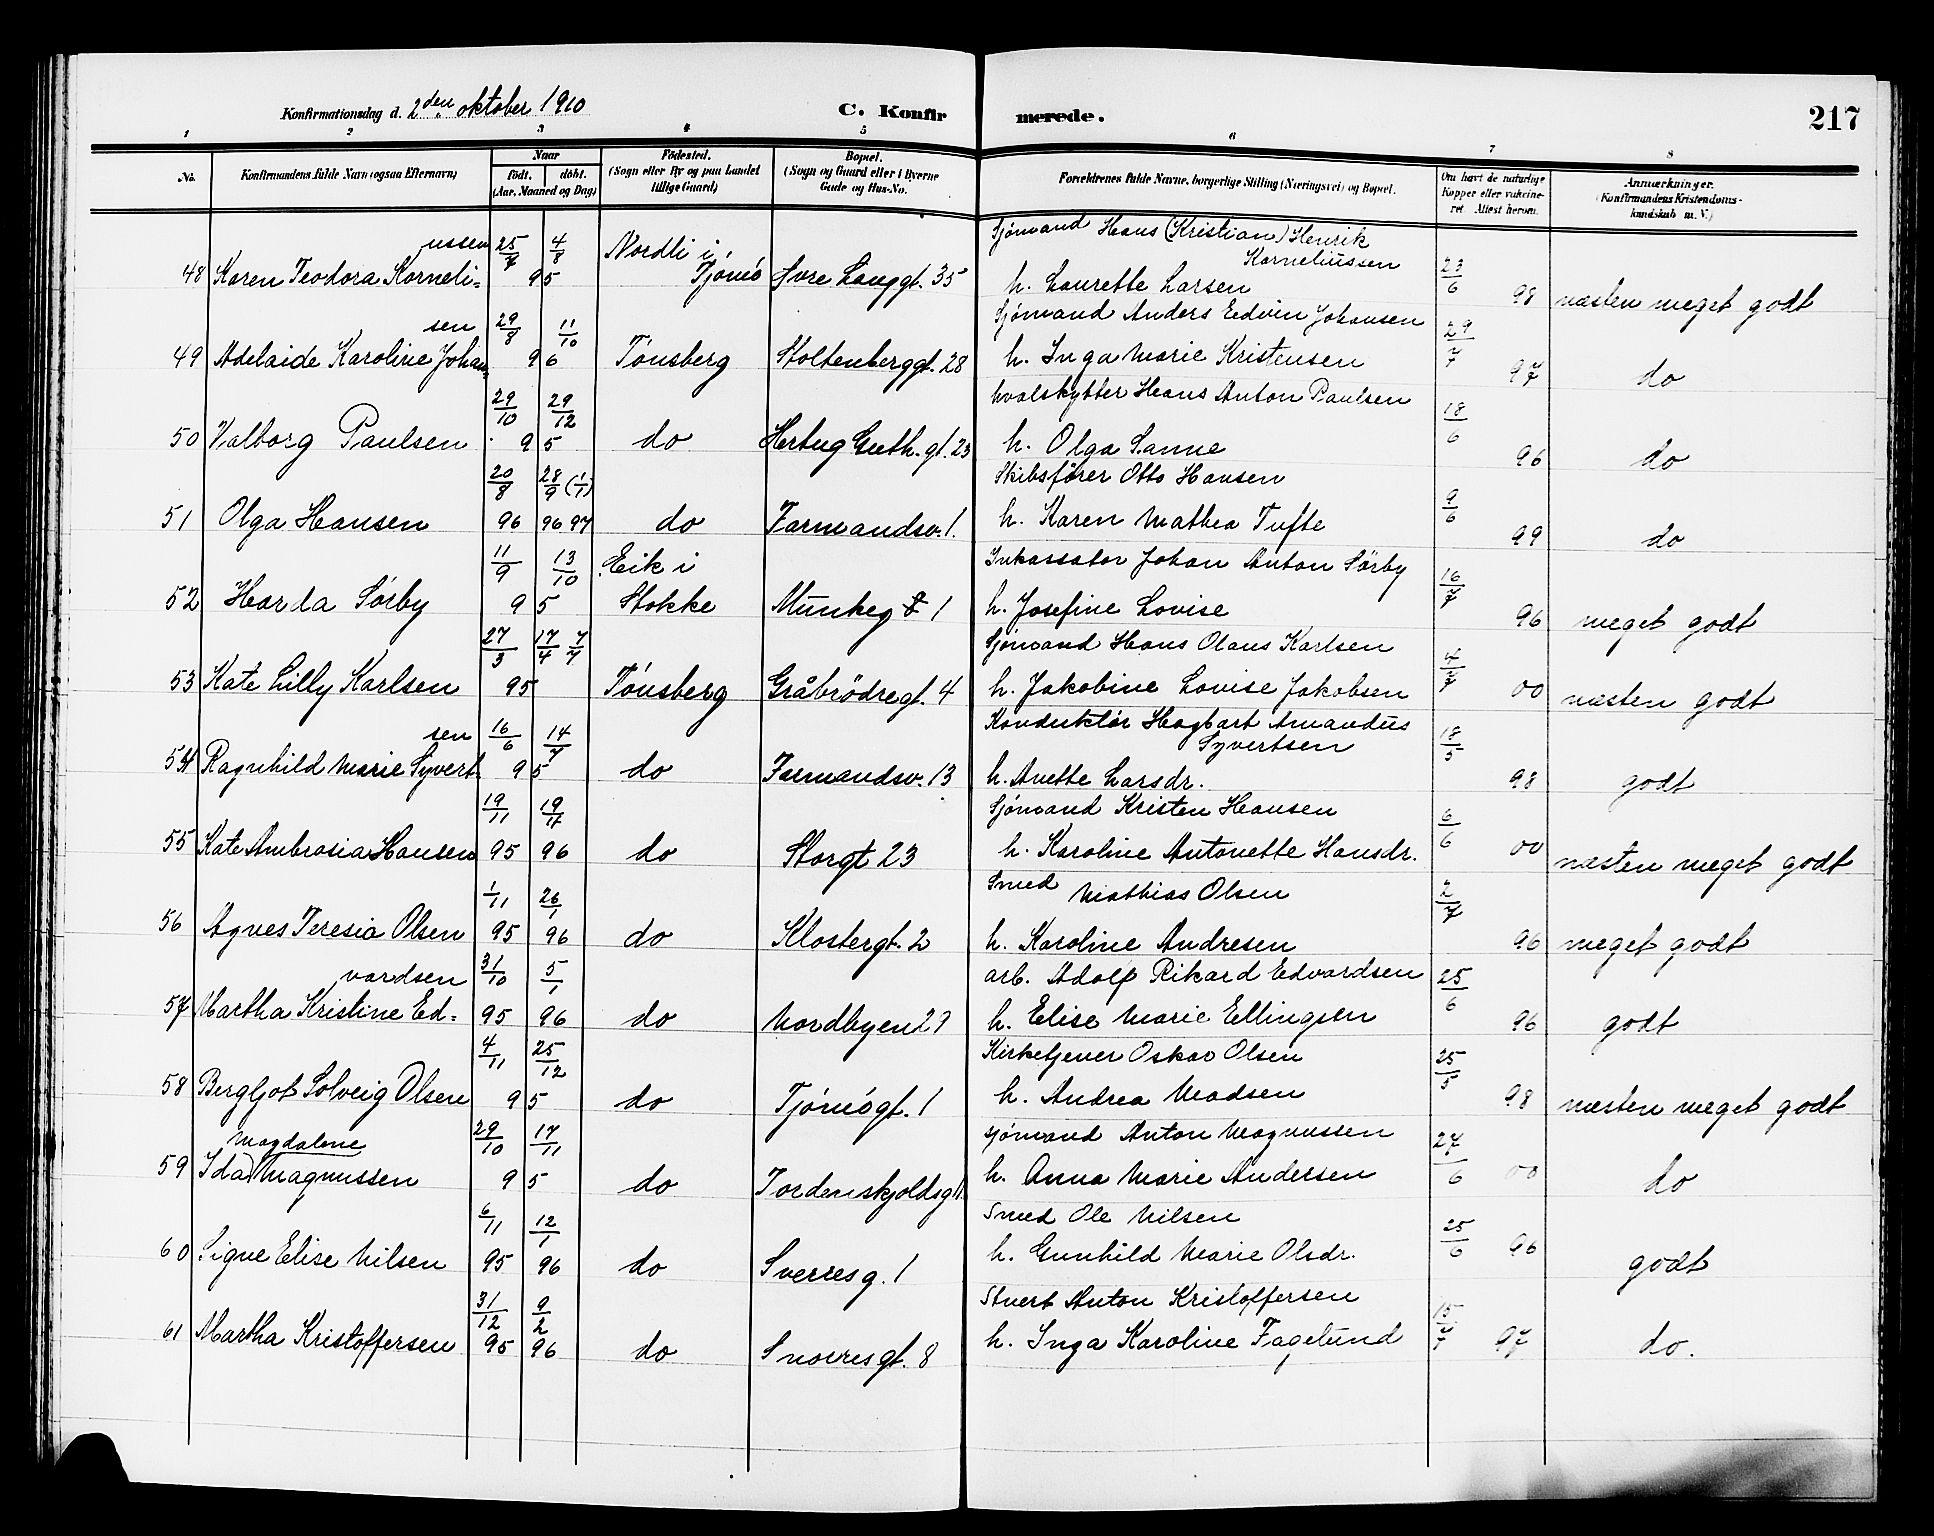 Konfirmationsdag d. 2den oktober 1910 C. Konfirmerede. 217
1 2 3 4 5 6 7 8
No. Konfirmandens fulde Navn (ogsaa Efternavn) Naar født. døbt. (Aar, Maaned og Dag) Fødested. (Sogn eller By og paa Landet tillige Gaard) Bopæl. (Sogn og Gaard eller i Byerne Gade og Hus-No. Forældrenes fulde Navne, borgerlige Stilling (Næringsvei) og Bopæl. Om havt de naturlige Kopper eller vaccineret. Attest herom. Anmærkninger. (Konfirmandens Kristendomskundskab m. V.)
ussen 25/7 4/8 Nordli i Sjømand Hans (Kristian) Henrik Korneliussen
48 Karen Teodora Korneli= 95 Tjømø Øvre Langgt. 35 h. Laurette Larsen 23/6 98 næsten meget godt
sen 29/8 11/10 Sjømand Anders Edvin Johansen
49 Adelaide Karoline Johan= 96 Tønsberg Stoltenberggt. 28 h. Inga Marie Kristensen 29/7 97 do
29/10 29/12 Hvalskytter Hans Anton Paulsen
50 Valborg Paulsen 95 do Hertug Guth. gt. 23 h. Olga Sanne 18/6 96 do
20/8 28/9 (1/1) Skibsfører Otto Hansen
51 Olga Hansen 96 96 97 do Farmandsv. 1. h. Karen Mathea Tufte 9/6 99 do
11/9 13/10 Eik i Inkassator Johan Anton Sørby
52 Harda Sørby 95 Stokke Munkeg 1 h. Josefine Lovise 16/7 96 meget godt
27/3 17/4 7/7 Sjømand Hans Olaus Karlsen
53 Kate Lilly Karlsen 95 Tønsberg Gråbrødregt. 4 h. Jakobine Lovise Jakobsen 4/7 00 næsten godt
sen 16/6 14/7 Konduktør Hagbart Amandus Syvertsen
54 Ragnhild Marie Syvert= 95 do Farmandsv. 13 h. Anette Larsdr. 18/5 98 godt
19/11 19/11 Sjømand Kristen Hansen
55 Kate Ambrosia Hansen 95 96 do Storgt 23 h. Karoline Antonette Hansdr. 6/6 00 næsten meget godt
1/11 26/1 Smed Mathias Olsen
56 Agnes Teresia Olsen 95 96 do Klostergt. 2 h. Karoline Andresen 2/7 96 meget godt
vardsen 31/10 5/1 arb. Adolf Rikard Edvardsen
57 Martha Kristine Ed= 95 96 do Nordbyen 27 h. Elise Marie Ellingsen 25/6 96 godt
4/11 25/12 Kirketjener Oskar Olsen
58 Bergljot Solveig Olsen 95 do Tjømøgt. 1 h. Andrea Madsen 25/5 98 næsten meget godt
Magdalene 29/10 17/11 Sjømand Anton Magnussen
59 Ida Magnussen 95 do Tordenskjoldsg 11. h. Anna Marie Andersen 27/6 00 do
6/11 12/1 Smed Ole Nilsen
60 Signe Elise Nilsen 95 96 do Sverresg. 1 h. Gunhild Marie Olsdr. 25/6 96 godt
31/12 9/2 Stuert Anton Kristoffersen
61 Martha Kristoffersen 95 96 do Snorresgt. 8 h. Inga Karoline Fagelund 15/7 97 do.